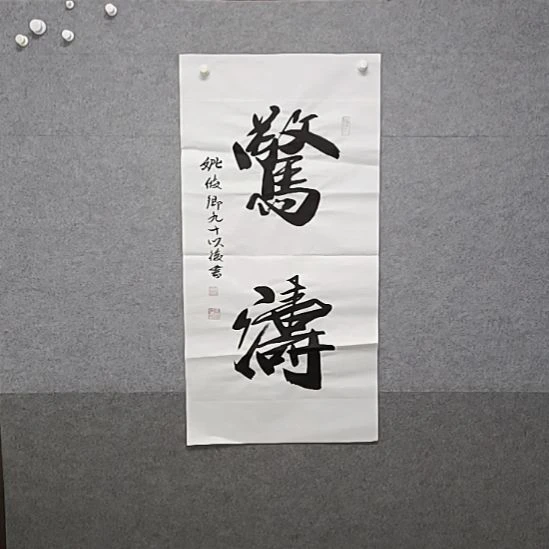 驚濤
姚俊卿九十以後書